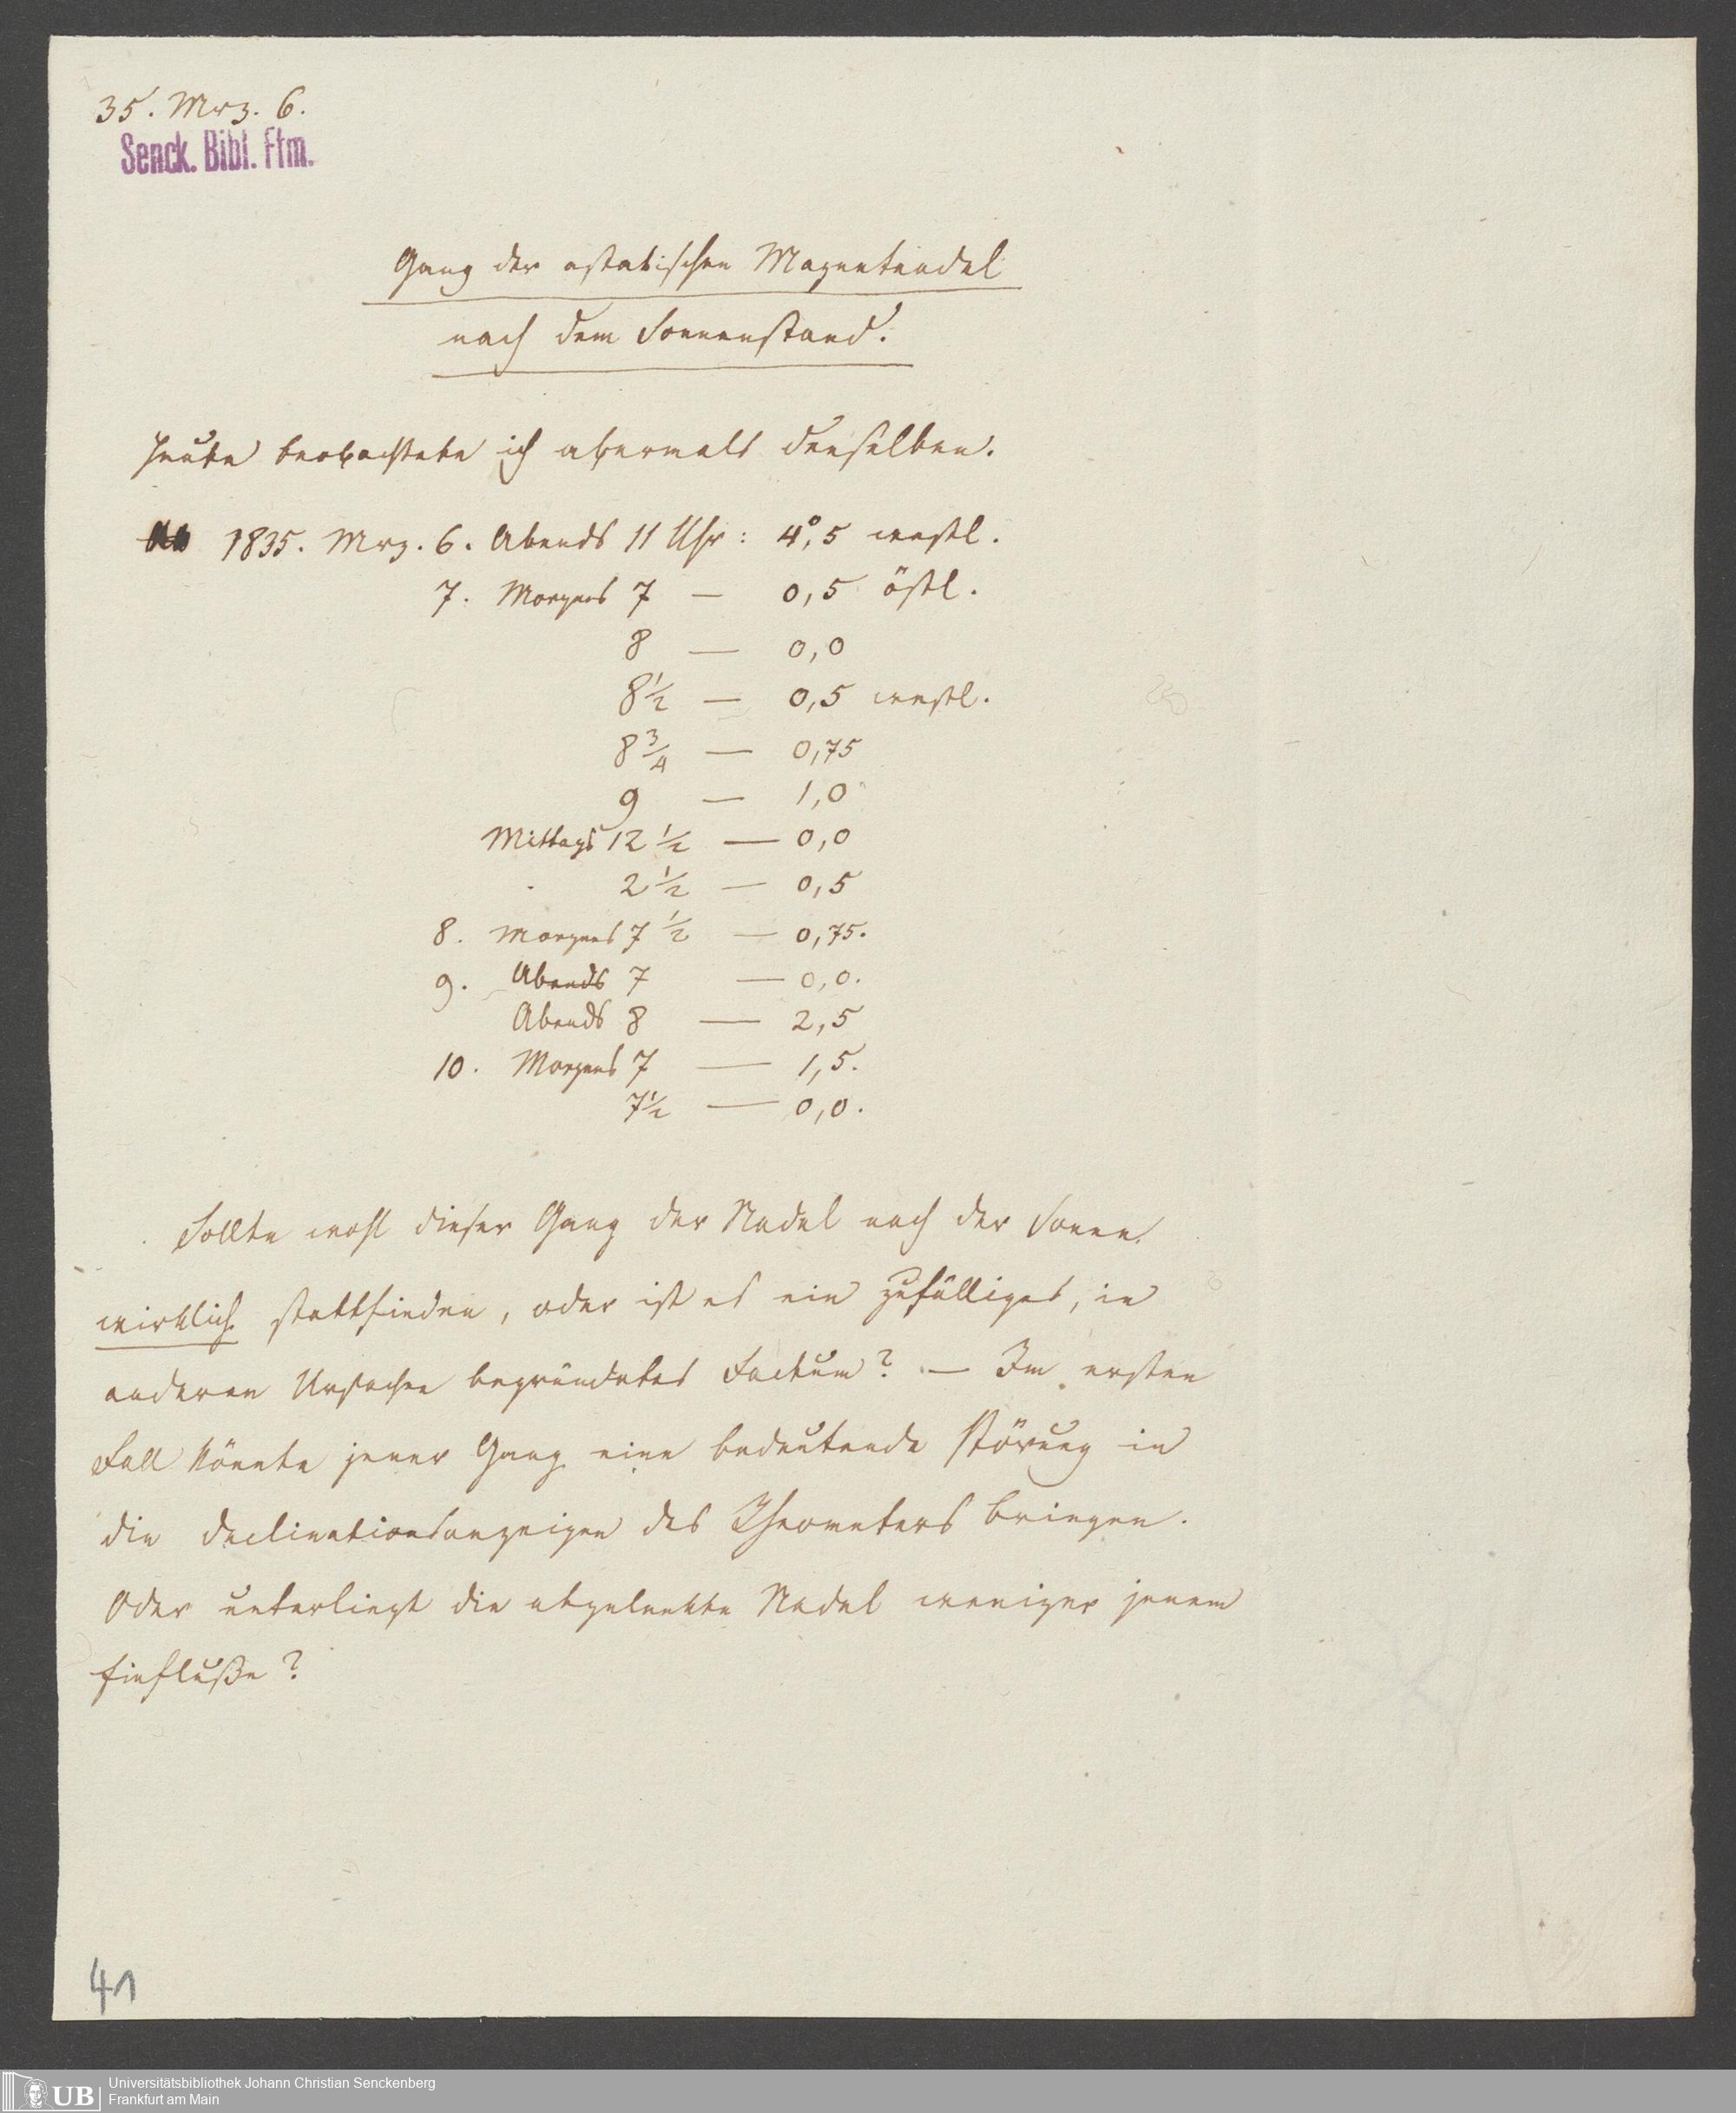 35. Mrz. 6.
Senck. Bibl. Ffm.
Gang der astatischen Magnetnadel
nach dem Sonnenstand.
Heute beobachtete ich abermals denselben.
1835. Mrz. 6. Abends 11 Uhr: 4°,5 westl.
7. Morgens 7 — 0,5 östl.
8 — 0,0
8½ — 0,5 westl.
8¾ — 0,75
9 — 1,0
Mittags 12½ — 0,0
2½ — 0,5
8. Morgens 7½ — 0,75.
9. Abends 7 — 0,0.
Abends 8 — 2,5
10. Morgens 7 — 1,5.
7½ — 0,0.
Sollte wohl dieser Gang der Nadel nach der Sonne
wirklich stattfinden, oder ist es ein zufälliges, in
anderen Ursachen begründetes Factum? — Im ersten
Fall könnte jener Gang eine bedeutende Störung in
die Declinationsanzeigen des Rheometers bringen.
Oder unterliegt die abgelenkte Nadel weniger jenem
Einfluße?
41
UB
Universitätsbibliothek Johann Christian Senckenberg
Frankfurt am Main